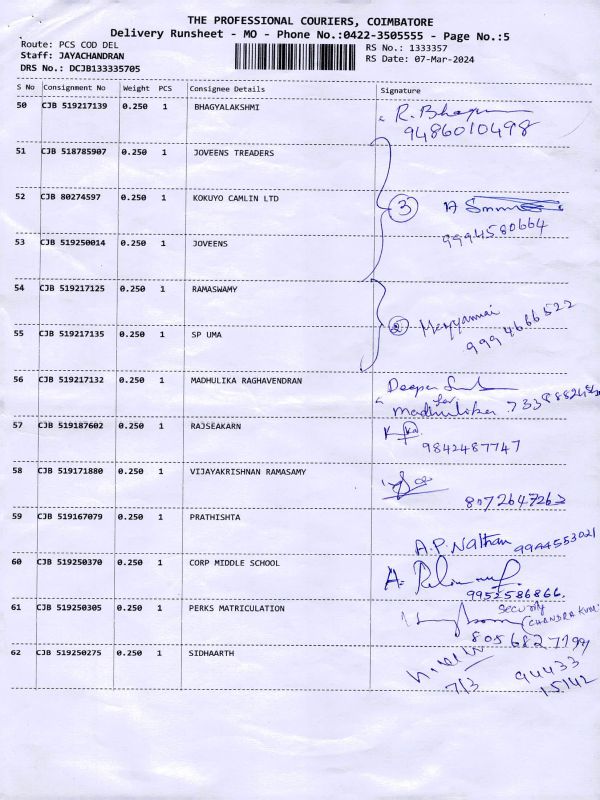 THE PROFESSIONAL COURIERS, COIMBATORE
Delivery Runsheet - MO - Phone No.:0422-3505555 - Page No.:5
Route: PCS COD DEL
RS No.: 1333357
Staff: JAYACHANDRAN
RS Date: 07-Mar-2024
DRS No.: DCJB133335705
S No Consignment No Weight PCS Consignee Details Signature
50 CJB 519217139 0.250 1 BHAGYALAKSHMI R. Bhagya
9486010498
51 CJB 518785907 0.250 1 JOVEENS TREADERS
52 CJB 80274597 0.250 1 KOKUYO CAMLIN LTD 3
9994580664
53 CJB 519250014 0.250 1 JOVEENS
54 CJB 519217125 0.250 1 RAMASWAMY
2 9994666522
55 CJB 519217135 0.250 1 SP UMA
56 CJB 519217132 0.250 1 MADHULIKA RAGHAVENDRAN Deepa
for
Madhulika
57 CJB 519187602 0.250 1 RAJSEAKARN
9842487747
58 CJB 519171880 0.250 1 VIJAYAKRISHNAN RAMASAMY
8072647263
59 CJB 519167079 0.250 1 PRATHISHTA
A.P. Nathan 9944553021
60 CJB 519250370 0.250 1 CORP MIDDLE SCHOOL A.
9952586866.
61 CJB 519250305 0.250 1 PERKS MATRICULATION Security
8056827799
62 CJB 519250275 0.250 1 SIDHAARTH
7/3 94433
15142